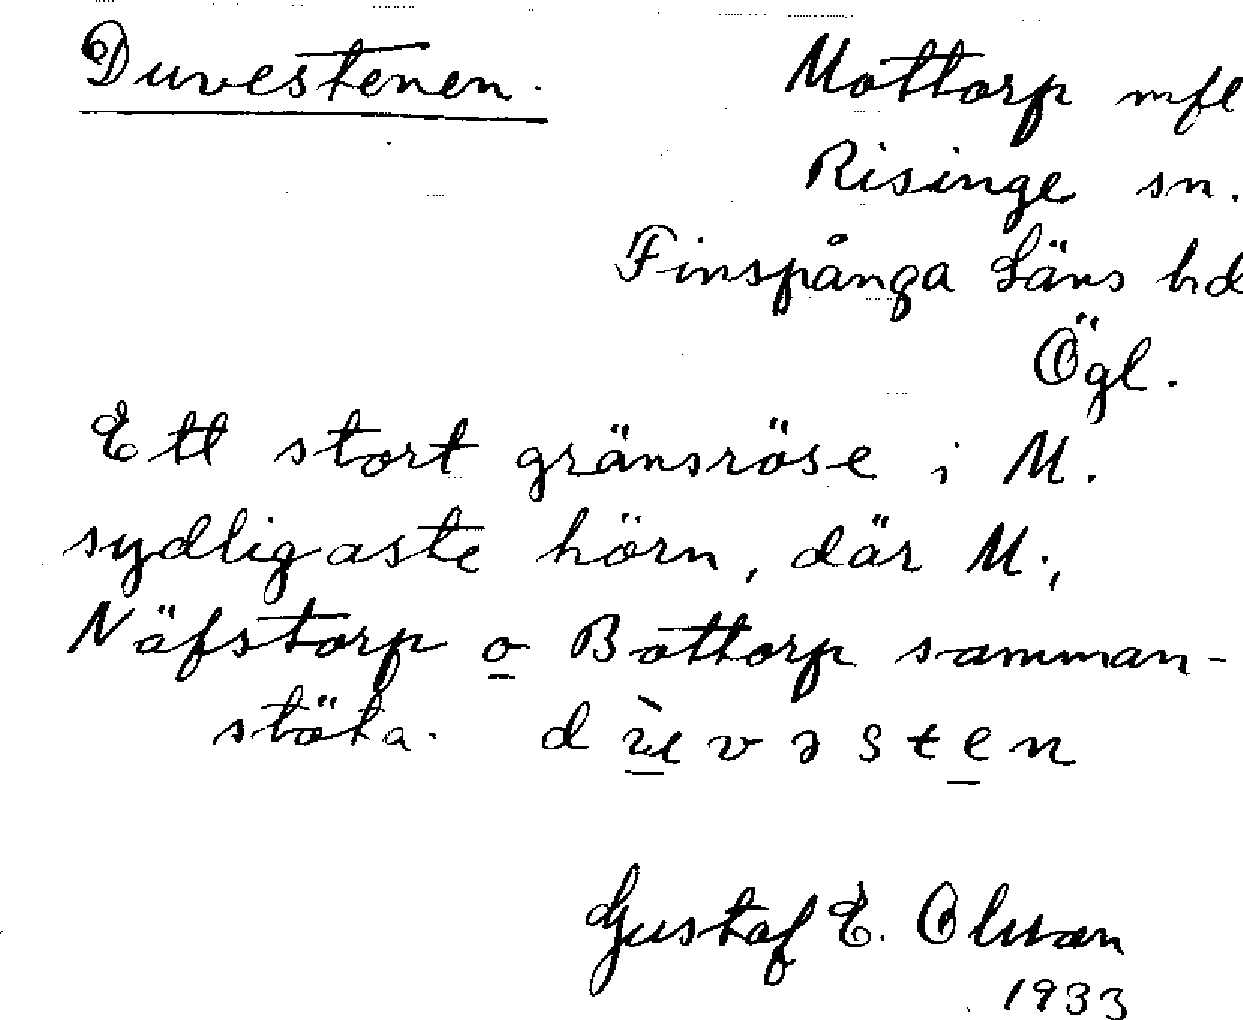 Duvestenen.
Mottorp mfl
Risinge sn.
Finspånga Läns hd
Ögl.
Ett stort gränsröse i M.
sydligaste hörn, där M.,
Näfstorp o Bottorp samman-
stöta. d ù v ə s t e n
Gustaf E. Olsson
1933